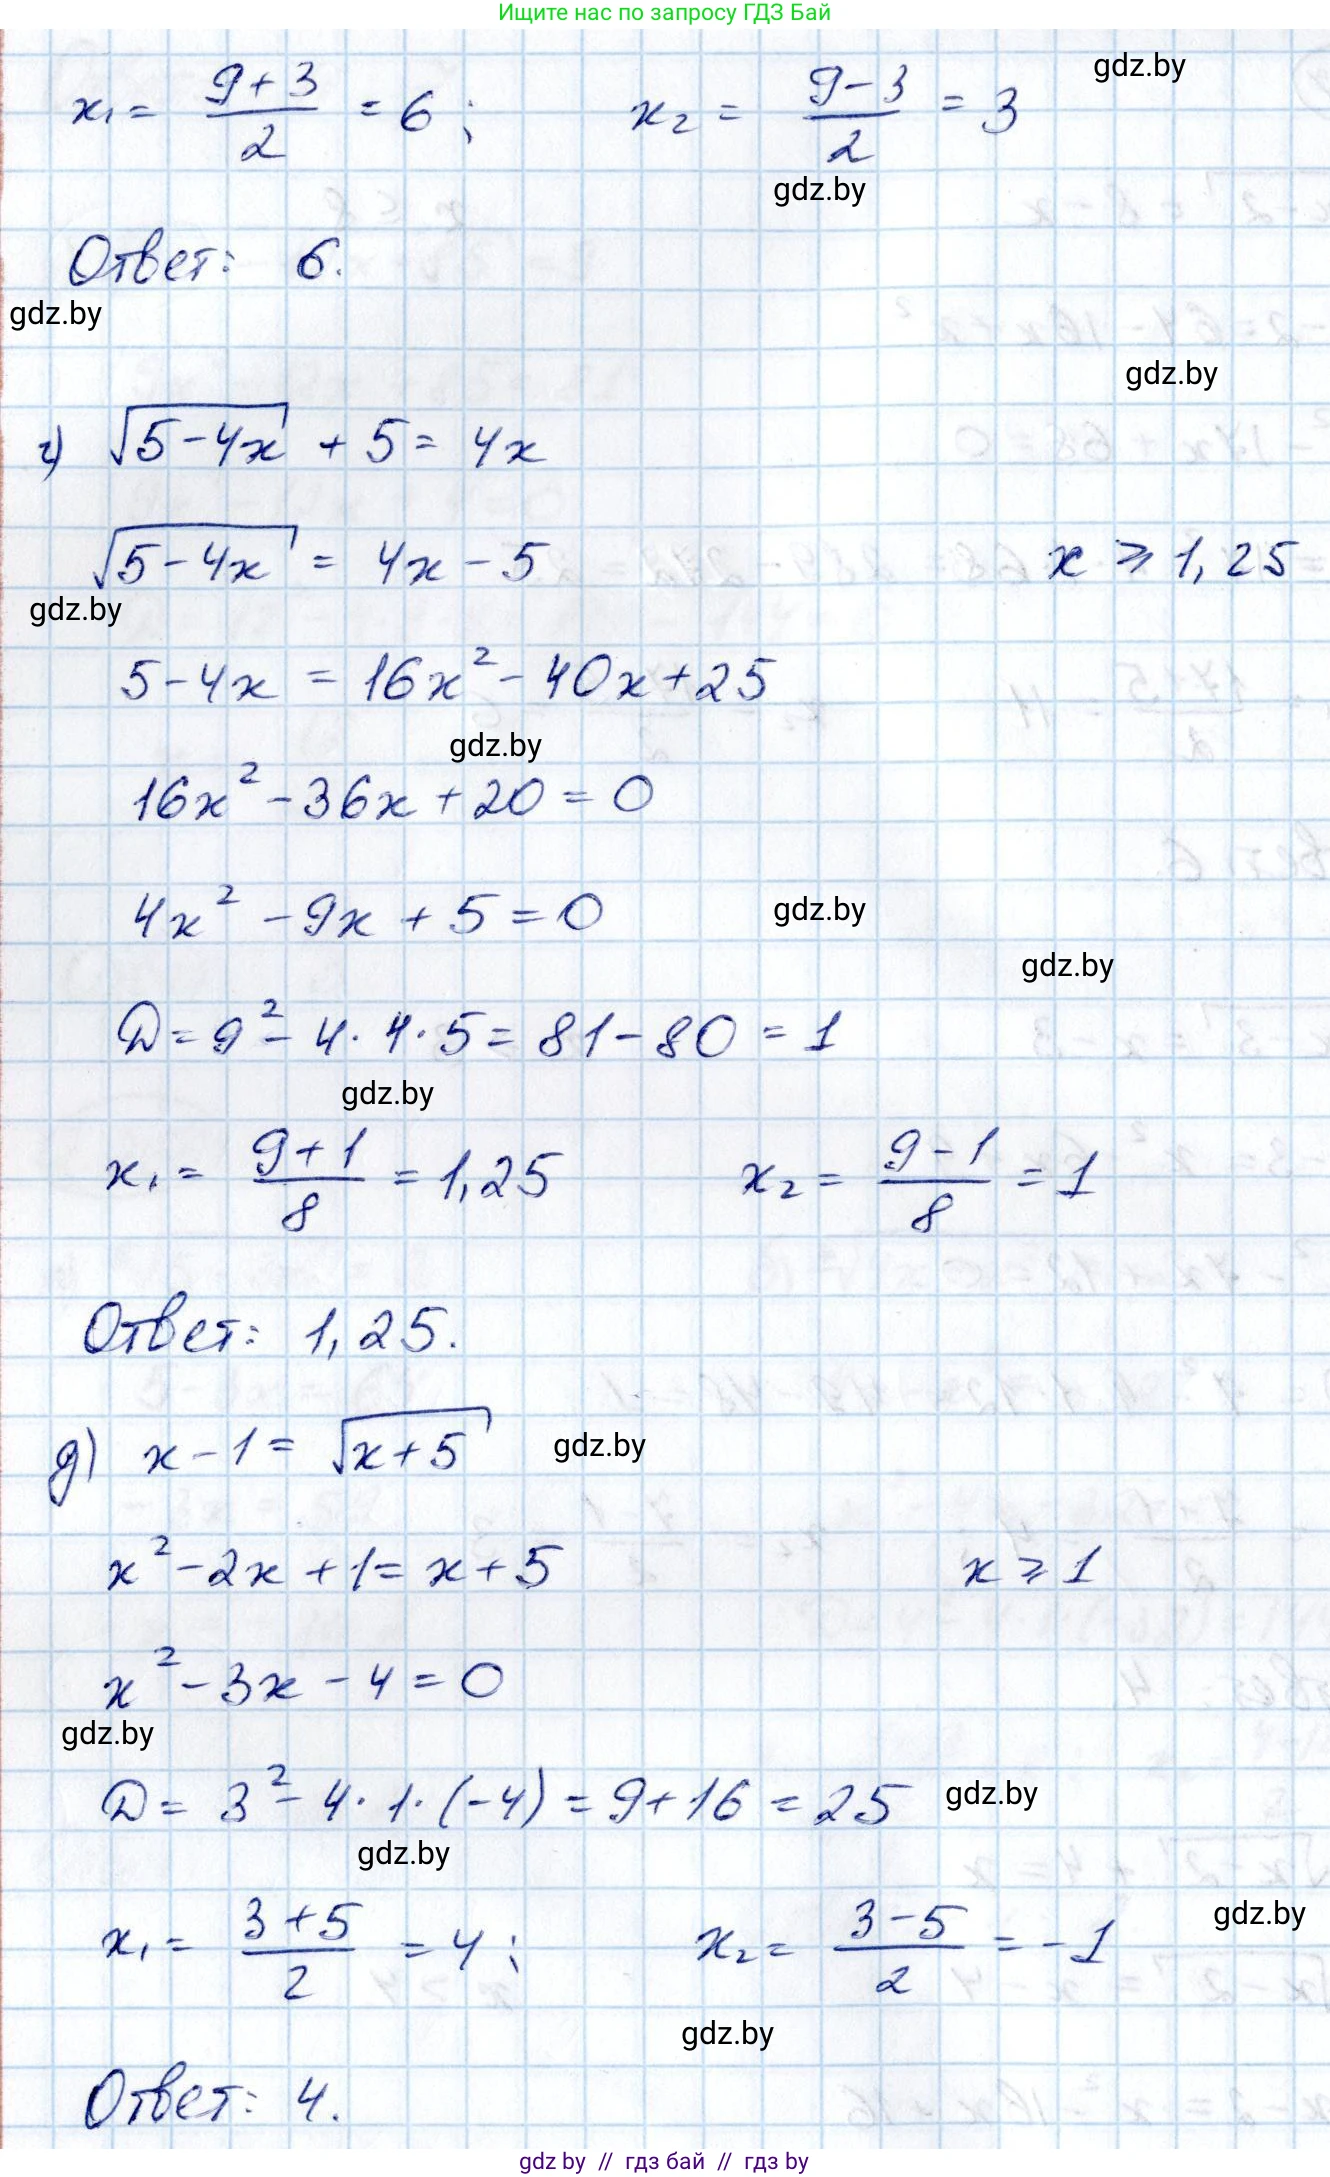 Ищите нас по запросу ГДЗ Бай
x₁ = (9+3)/2 = 6; x₂ = (9-3)/2 = 3
gdz.by
gdz.by
Ответ: 6.
gdz.by
gdz.by
г) √(5-4x) + 5 = 4x
√(5-4x) = 4x - 5 x ⩾ 1,25
gdz.by
5-4x = 16x² - 40x + 25
gdz.by
16x² - 36x + 20 = 0
4x² - 9x + 5 = 0
gdz.by
gdz.by
D = 9² - 4·4·5 = 81 - 80 = 1
gdz.by
x₁ = (9+1)/8 = 1,25 x₂ = (9-1)/8 = 1
Ответ: 1,25.
д) x - 1 = √(x+5)
gdz.by
x² - 2x + 1 = x + 5 x ⩾ 1
x² - 3x - 4 = 0
gdz.by
D = 3² - 4·1·(-4) = 9 + 16 = 25
gdz.by
gdz.by
x₁ = (3+5)/2 = 4; x₂ = (3-5)/2 = -1
gdz.by
gdz.by
Ответ: 4.
gdz by // гдз бай // гдз by